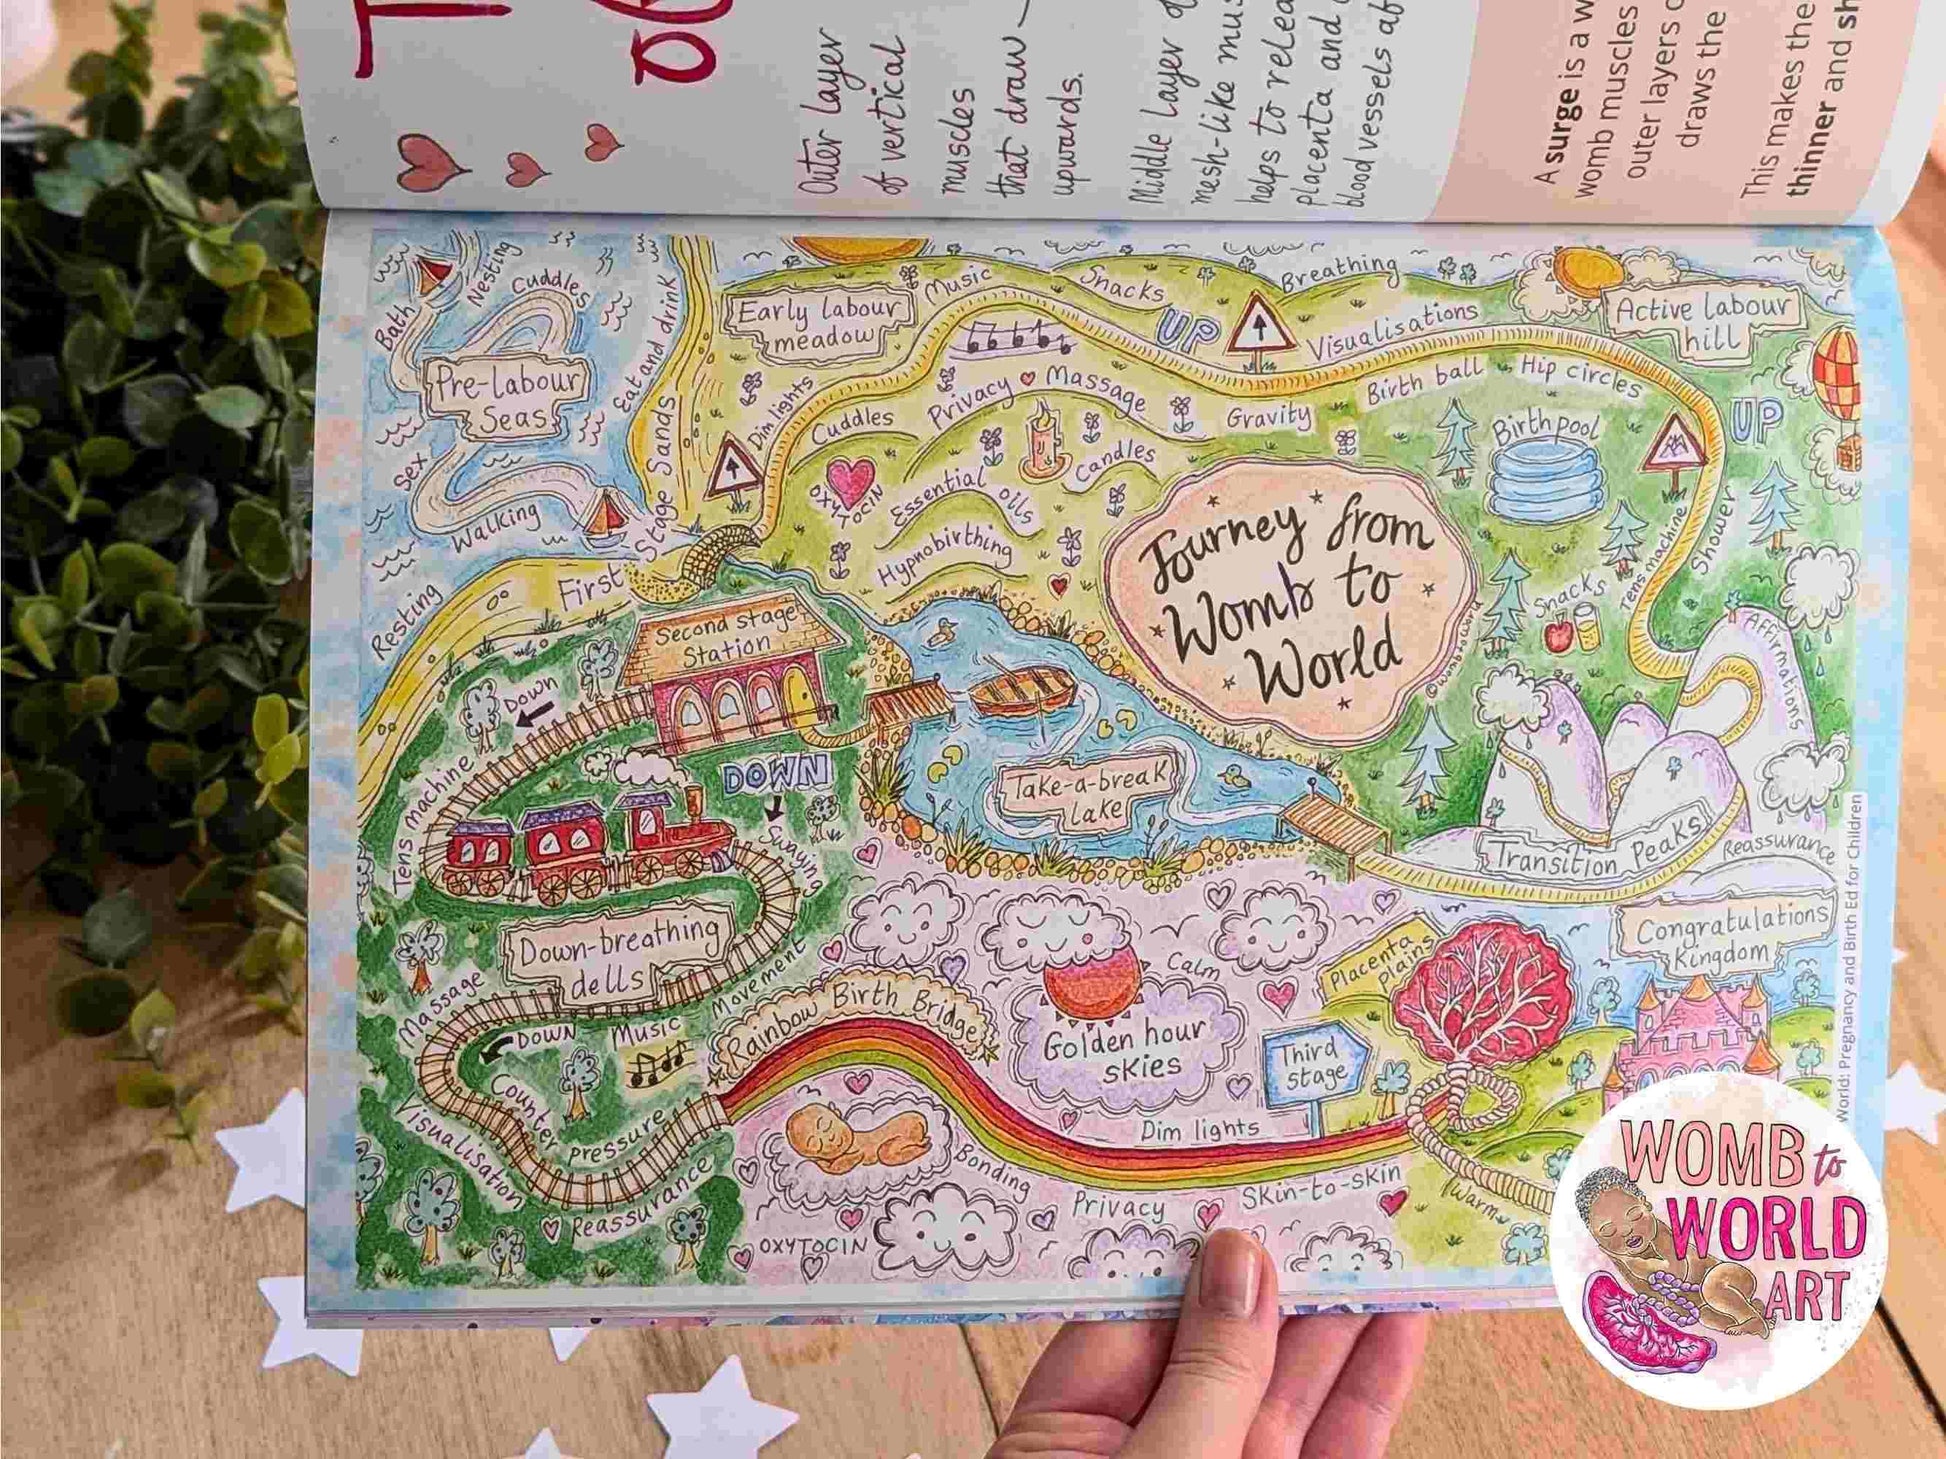 Outer layer
of vertical
muscles
that draw
upwards.
Middle layer
mesh-like
helps to
placenta and
blood vessels
A surge is a
womb muscles
outer layers
draws the
This makes the
thinner and
Bath
Nesting
Cuddles
Pre-labour
Seas
Sex
Walking
Resting
Eat and drink
First Stage Sands
Early labour
meadow
Music
Snacks
UP
Breathing
Visualisations
Active labour
hill
Dim lights
Cuddles
Privacy
Massage
Gravity
Birth ball
Hip circles
UP
OXYTOCIN
Essential oils
Candles
Hypnobirthing
Birth pool
Journey from
Womb to
World
©Womb to World
Snacks
Tens machine
Shower
Affirmations
Second stage
Station
Down
Tens machine
DOWN
Swaying
Take-a-break
Lake
Transition Peaks
Reassurance
Down-breathing
dells
Massage
DOWN
Music
Movement
Counter pressure
Visualisation
Reassurance
Rainbow Birth Bridge
Golden hour
skies
Calm
Placenta
plains
Congratulations
Kingdom
Third
stage
Dim lights
Bonding
Privacy
Skin-to-skin
Warm
OXYTOCIN
World: Pregnancy and Birth Ed for Children
WOMB to
WORLD
ART